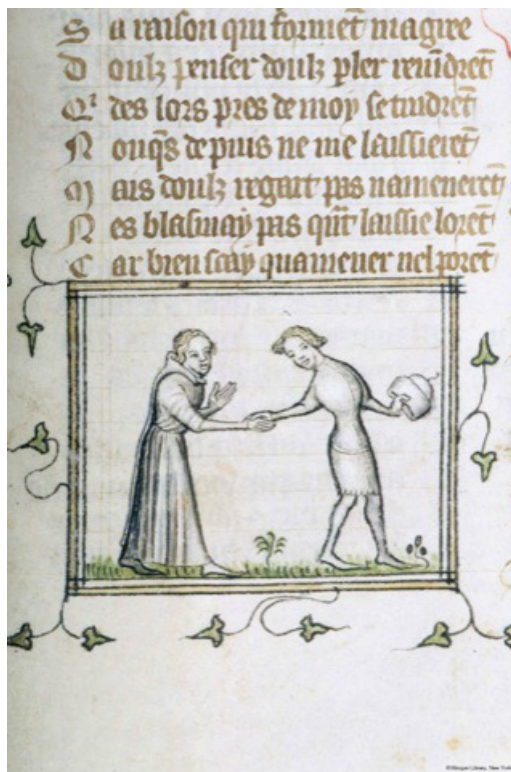 S a raison qui forment magree
D oulz penser doulz pler revindrēt
Qⁱ des lors pres de moy se tindrēt
N onq̄s depuis ne me laissierēt
M ais doulz regart pas namenerēt
N es blasmay pas q̄nt laissie lorēt
C ar bien scay quamener nel porēt
©Morgan Library, New York